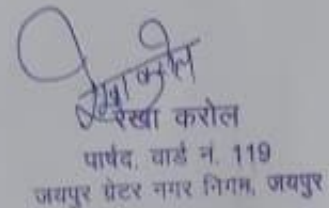 रेखा करोल
रेखा करोल
पार्षद, वार्ड नं. 119
जयपुर ग्रेटर नगर निगम, जयपुर